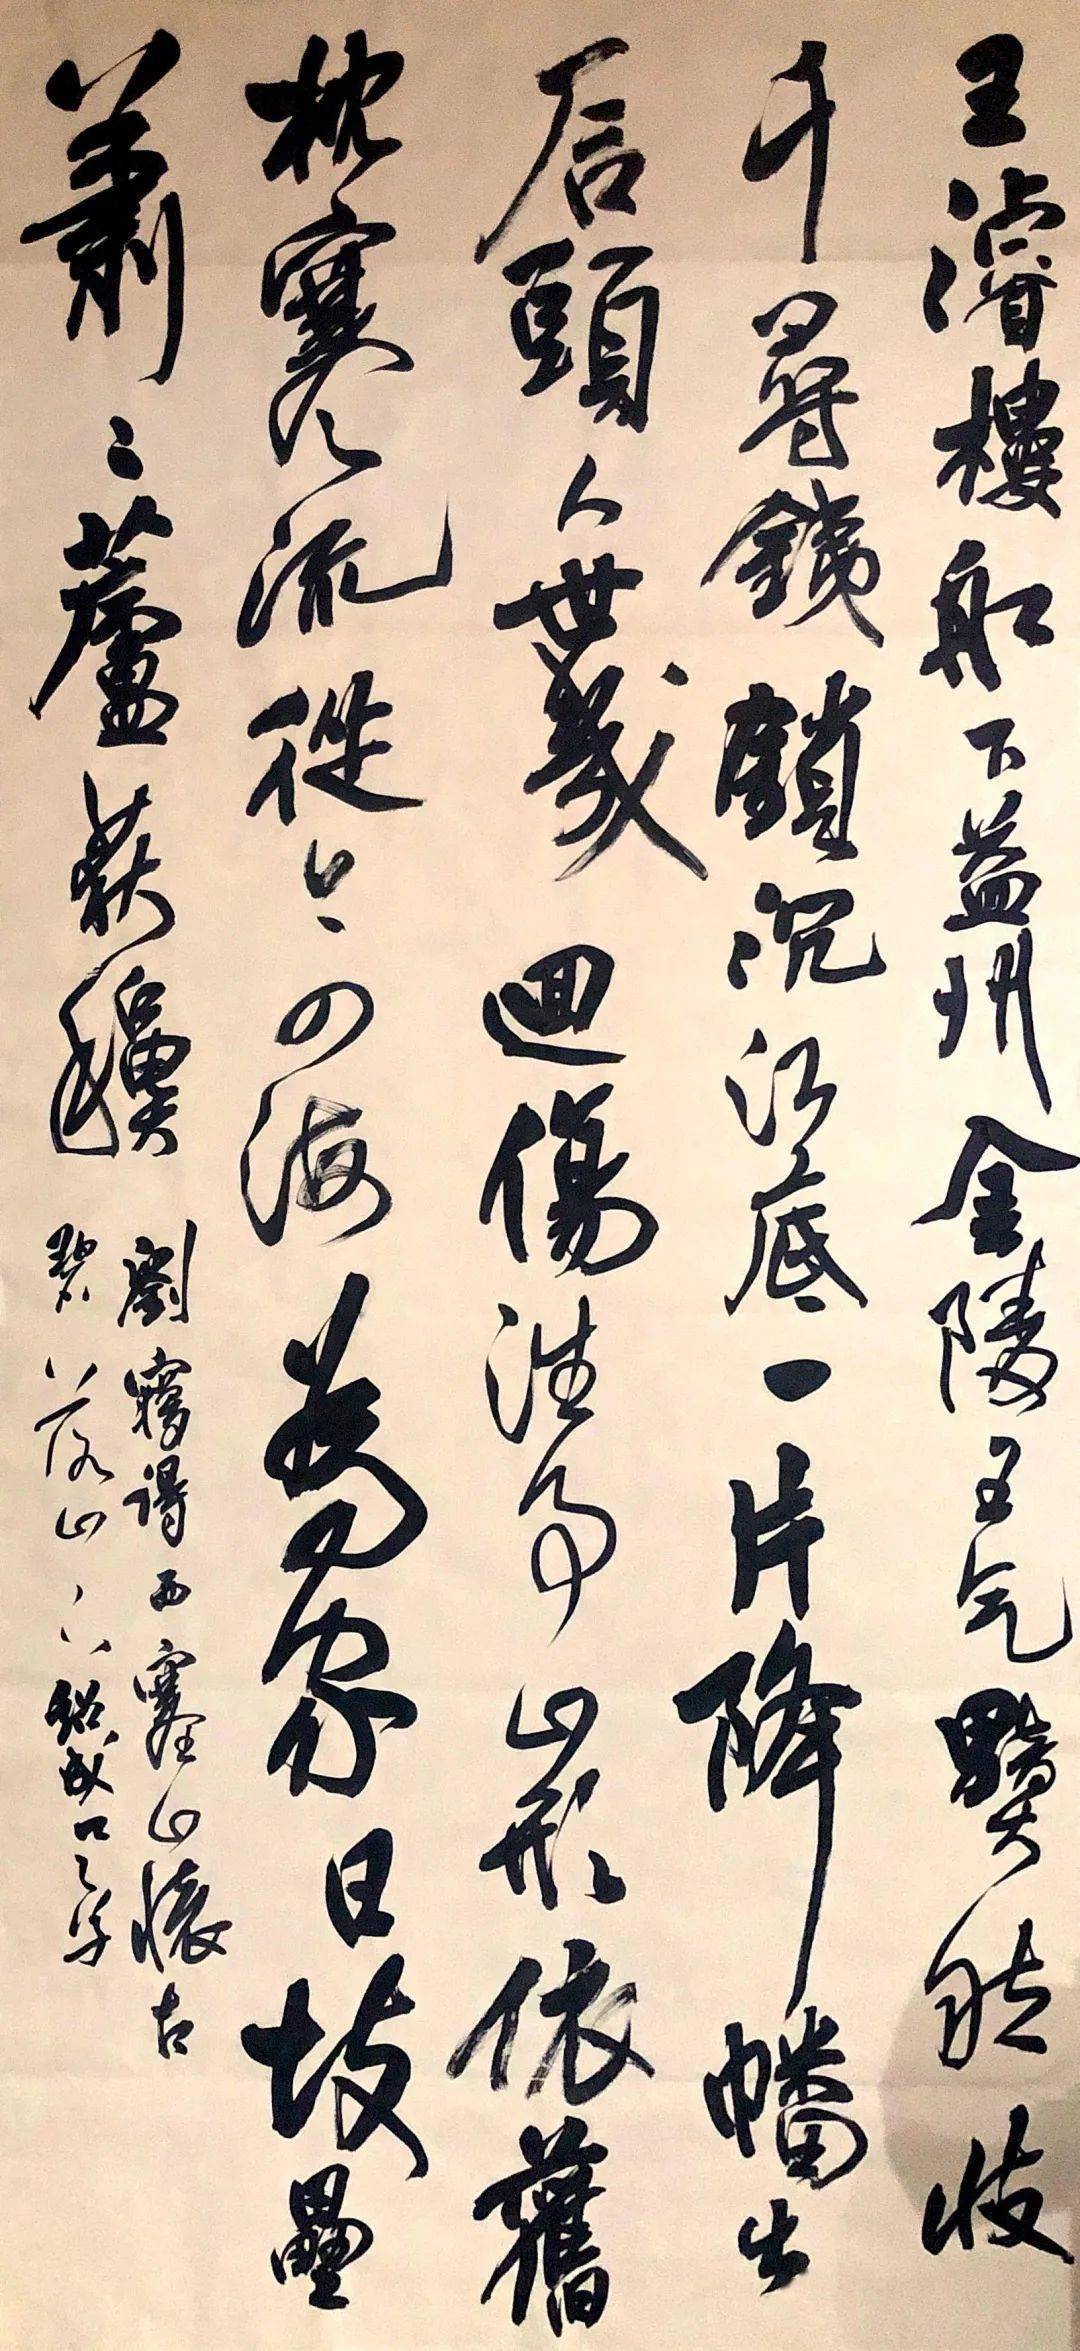 王濬樓舡下益州金陵王气黯然收
千尋鐵鎖沉江底一片降幡出
石頭人世幾迴傷往事山形依舊
枕寒流從今四海為家日故壘
蕭〻蘆荻龝
劉夢得西塞山懷古
碧落山人